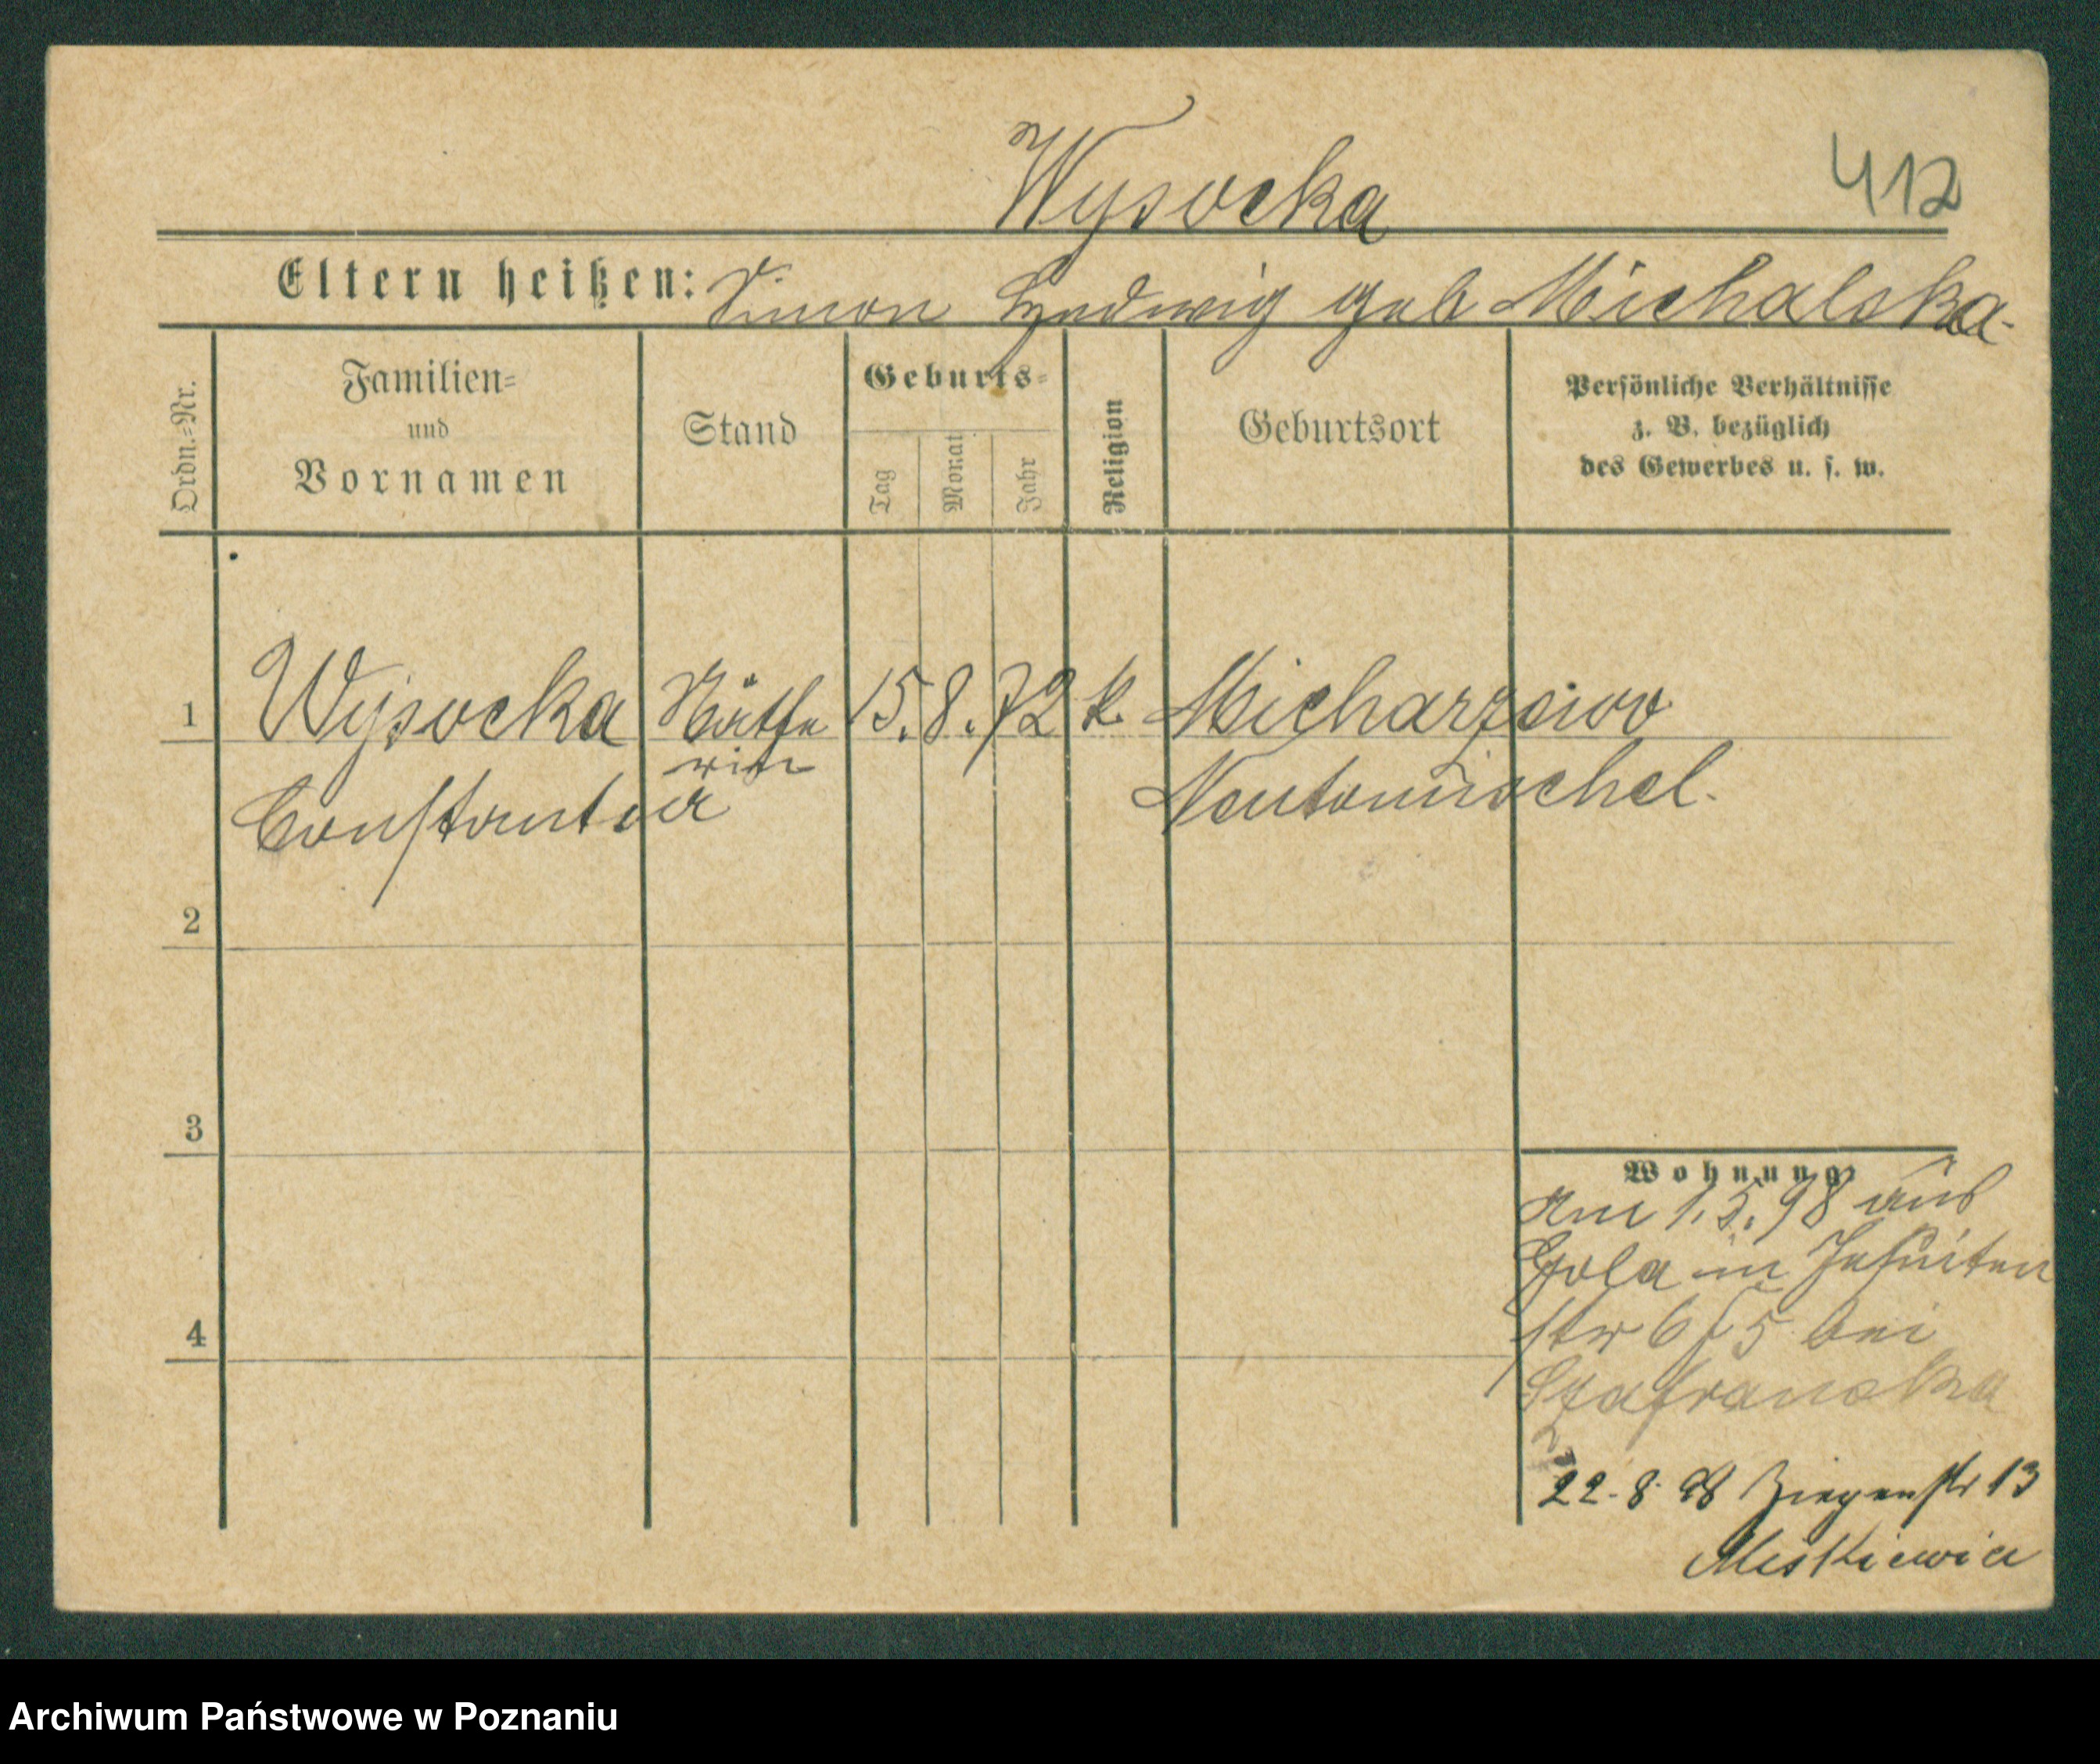 Wysocka
412
Eltern heißen: Simon Hedwig geb Michalska
Ordn.-Nr.
Familien-
und
Vornamen
Stand
Geburts-
Tag
Monat
Jahr
Religion
Geburtsort
Persönliche Verhältnisse
z. B. bezüglich
des Gewerbes u. s. w.
1 Wysocka Näthe 15. 8. 72 k. Micharzewo
rin
Constantia Neutomischel.
2
3
4
Wohnung
Am 1.5.98 aus
Gola in Jesuiten
str 6 f 5 bei
Szafranska
22. 8. 98 Ziegenstr 13
Archiwum Państwowe w Poznaniu